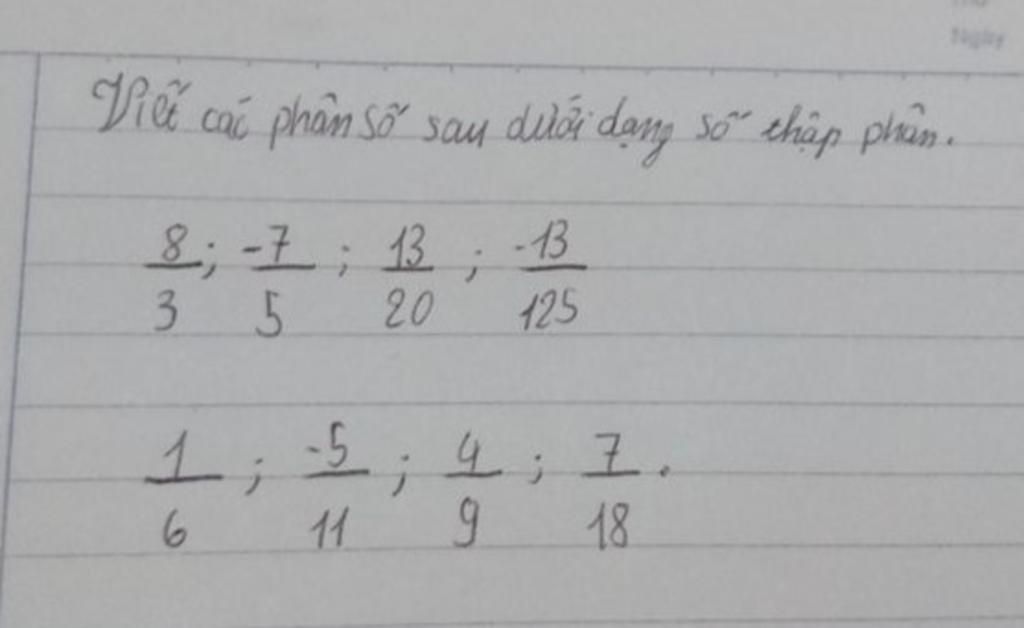 Ngày
Viết các phân số sau dưới dạng số thập phân.
8/3; -7/5; 13/20; -13/125
1/6; -5/11; 4/9; 7/18.